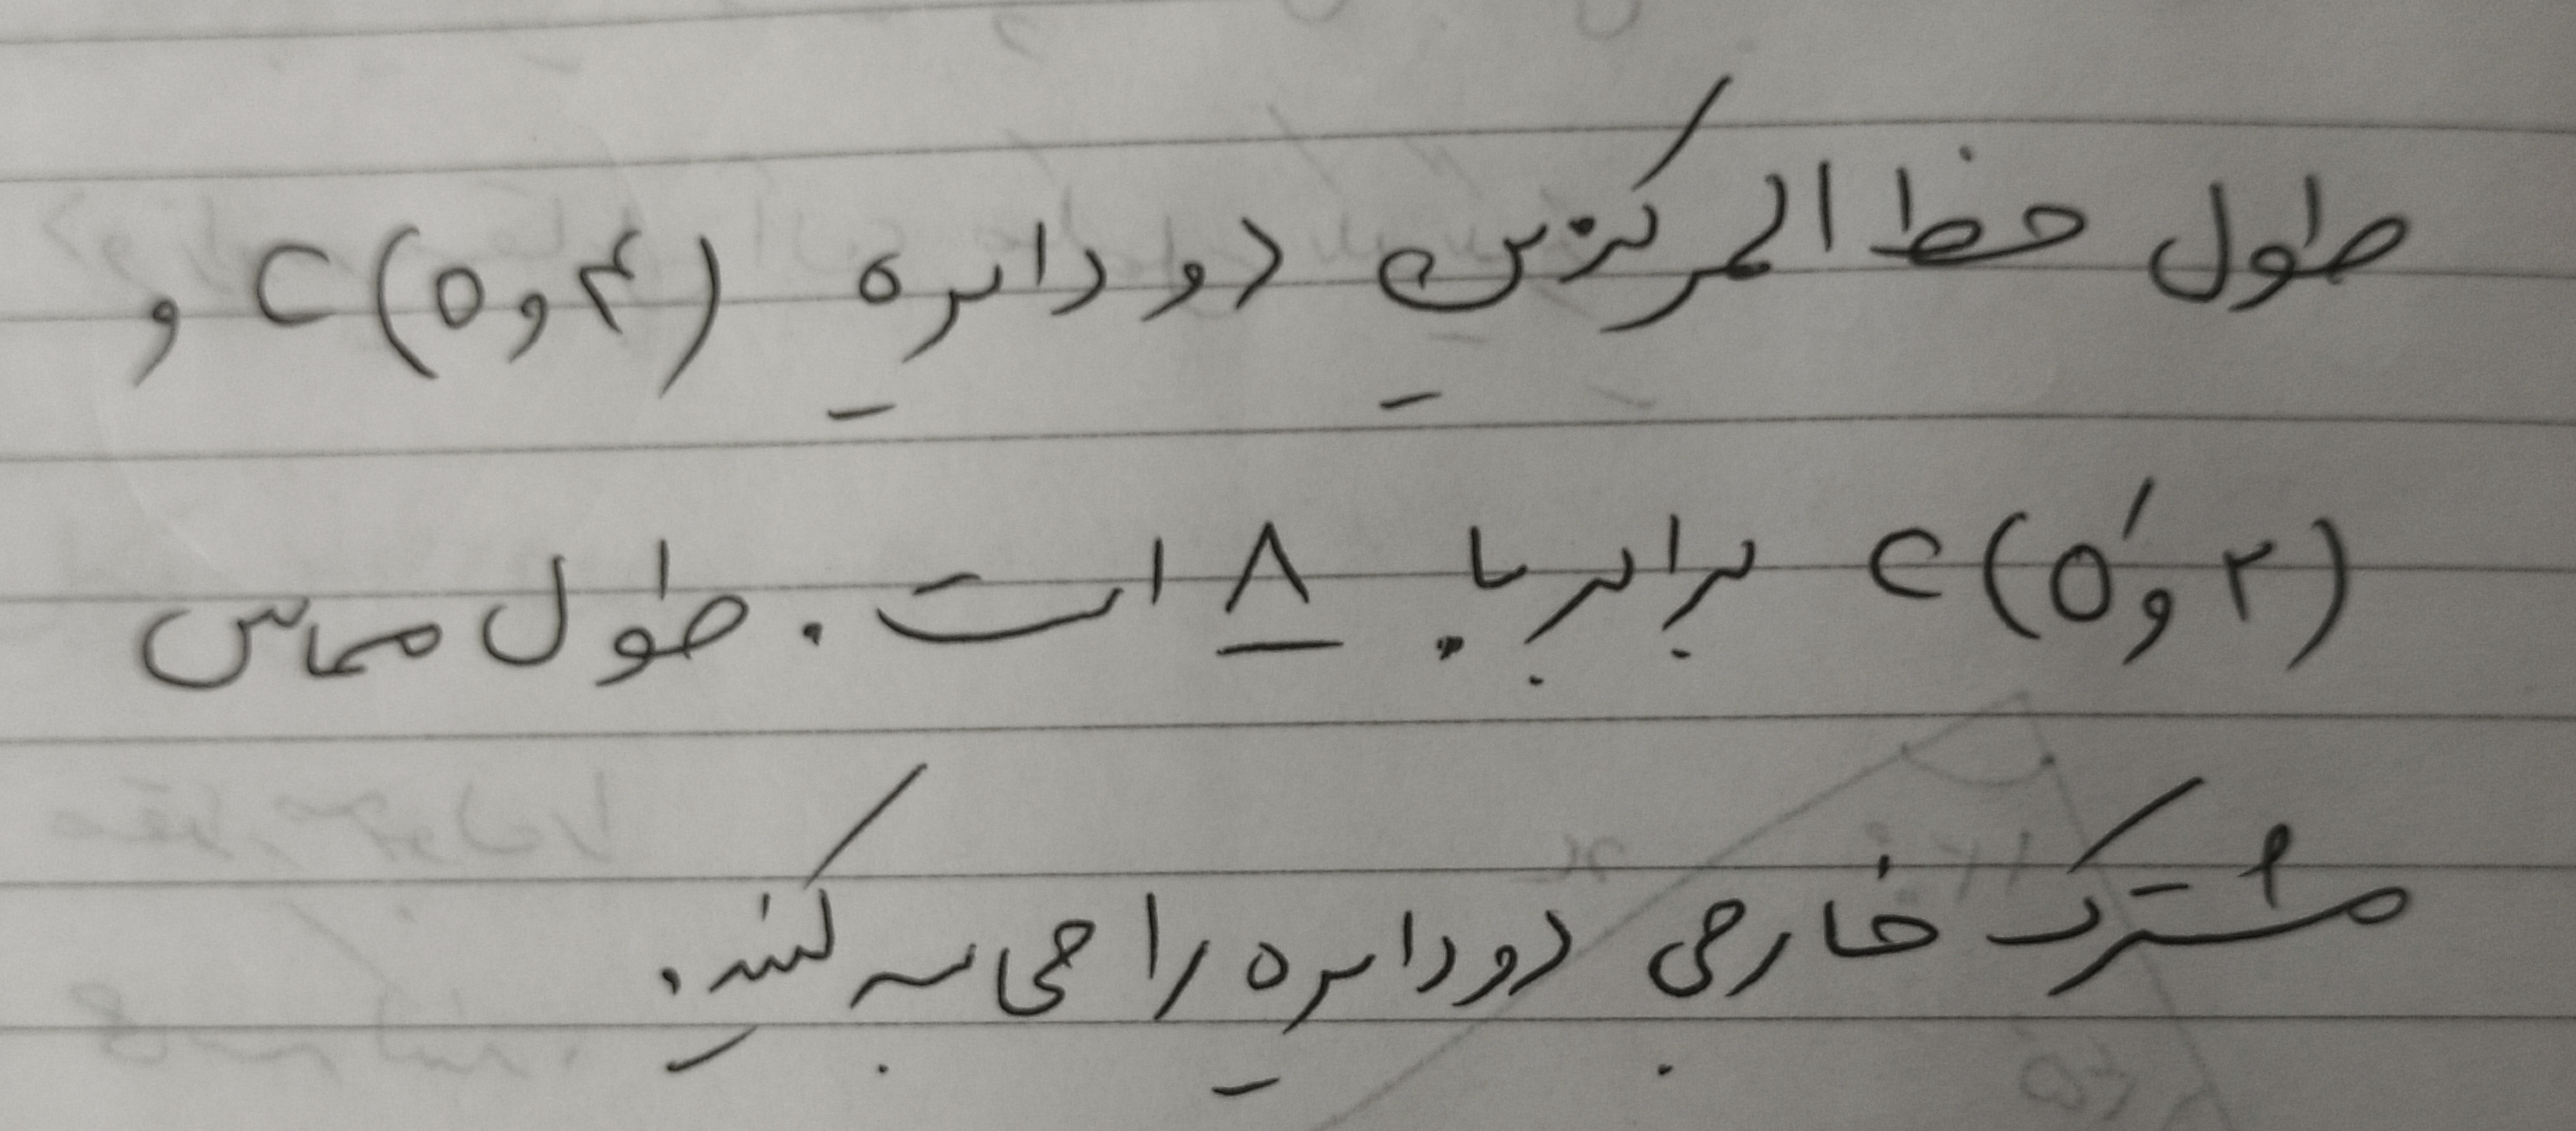 طول خط المرکزین دو دایره C(O و ۴) و
C(O′ و ۲) برابر با ۸ است . طول مماس
مشترک خارجی دو دایره را محاسبه کنید.